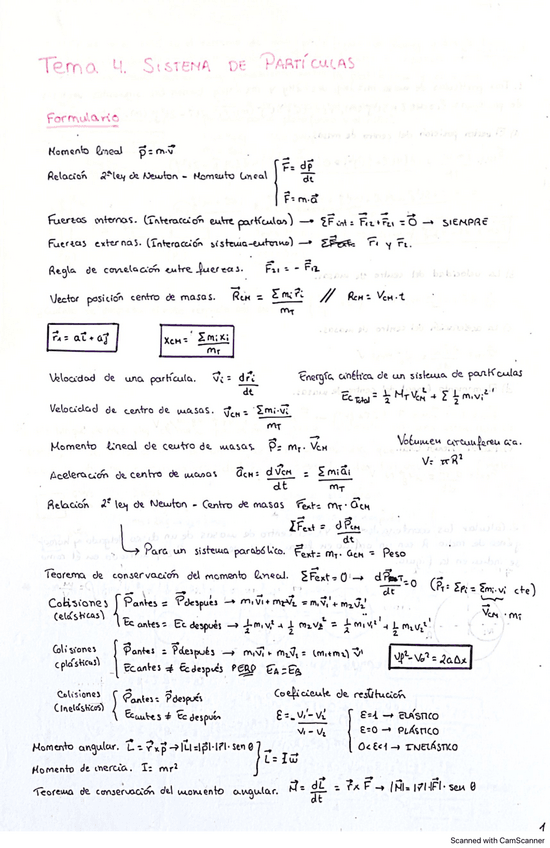 Tema 4. SISTEMA DE PARTÍCULAS
Formulario
Momento lineal p⃗ = m·v⃗
Relación 2ª ley de Newton - Momento lineal { F⃗ = dp⃗/dt
F⃗ = m·a⃗
Fuerzas internas. (Interacción entre partículas) → ΣF⃗int = F⃗12 + F⃗21 = 0⃗ → SIEMPRE
Fuerzas externas. (Interacción sistema-entorno) → F1 y F2.
Regla de correlación entre fuerzas. F⃗21 = - F⃗12
Vector posición centro de masas. R⃗CM = Σmi·r⃗i/mT // RCM = VCM·t
r⃗A = ai⃗ + aj⃗
XCM = Σmi xi/mT
Velocidad de una partícula. v⃗i = dr⃗i/dt
Energía cinética de un sistema de partículas
Ec total = ½ MT VCM² + Σ ½ mi vi²'
Velocidad de centro de masas. v⃗CM = Σmi·v⃗i/mT
Momento lineal de centro de masas P⃗ = mT·V⃗CM
Volumen circunferencia.
V = πR²
Aceleración de centro de masas a⃗CM = dV⃗CM/dt = Σmi a⃗i/mT
Relación 2ª ley de Newton - Centro de masas Fext = mT·a⃗CM
ΣF⃗ext = dP⃗CM/dt
→ Para un sistema parabólico. F⃗ext = mT·aCM = Peso
Teorema de conservación del momento lineal. ΣF⃗ext = 0 → dP⃗T/dt = 0 (P⃗T = ΣPi = Σmi·vi cte)
V⃗CM·mT
Colisiones (elásticas) { P⃗antes = P⃗después → m1v⃗1 + m2v⃗2 = m1v⃗1' + m2v⃗2'
Ec antes = Ec después → ½ m1v1² + ½ m2v2² = ½ m1v1²' + ½ m2v2²'
Colisiones (plásticas) { P⃗antes = P⃗después → m1v⃗1 + m2v⃗2 = (m1+m2) v⃗'
Ec antes ≠ Ec después PERO EA = EB
vf² - v0² = 2aΔx
Colisiones (inelásticas) { P⃗antes = P⃗después
Ec antes ≠ Ec después
Coeficiente de restitución
ε = - v1' - v2'/v1 - v2 { ε=1 → ELÁSTICO
ε=0 → PLÁSTICO
0<ε<1 → INELÁSTICO
Momento angular. L⃗ = r⃗ x p⃗ → |L| = |p⃗|·|r|·sen θ } L⃗ = I ω⃗
Momento de inercia. I = mr²
Teorema de conservación del momento angular. M⃗ = dL⃗/dt = r⃗ x F⃗ → |M⃗| = |r|·|F|·sen θ
1
Scanned with CamScanner